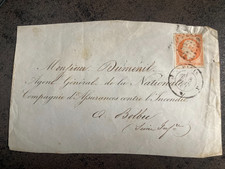 Monsieur Dumenil
Agent Général de la Nationale
Compagnie d'Assurances contre l'Incendie
à Bolbec
(Seine Infre)